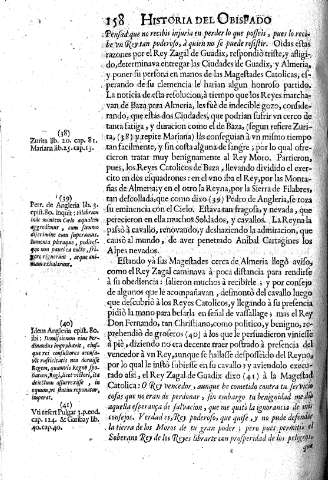 158 HISTORIA DEL OBISPADO
Pensad que no recibis injuria en perder lo que posseis, pues lo recibe
vn Rey tan poderoso, à quien no se puede resistir. Oidas estas
razones del Rey Zagal de Guadix, respondió triste, y afligido,
determinava entregar las Ciudades de Guadix, y Almeria,
y poner su persona en manos de las Magestades Catolicas, esperando
de su clemencia le harian algun honroso partido.
La noticia de esta resolucion, à tiempo que los Reyes marchavan
de Baza para Almeria, les fuè de indecible gozo, considerando,
que estas dos Ciudades, que podrian sufrir va cerco de
tanta fatiga, y duracion como el de Baza, (segun refiere Zurita,
(38) y repite Mariana) las conseguian à vn mismo tiempo
facilmente, y sin costa alguna de sangre, por lo qual ofrecieron
tratar muy benignamente al Rey Moro. Partieron,
pues, los Reyes Catolicos de Baza, llevando dividido el exercito
en dos esquadrones: en el vno iba el Rey, por las Montañas
de Almeria; y en el otro la Reyna, por la Sierra de Filabres,
tan descollada, que como dixo (39) Pedro de Angleria, se roza
su eminencia con el Cielo. Estava tan fragosa, y nevada, que
perecieron en ella muchos Soldados, y cavallos. La Reyna la
passò à cavallo, renovando, y deshaziendo la admiracion, que
causò al mundo, de aver penetrado Anibal Cartagines los
Alpes nevados.
Estando yà sus Magestades cerca de Almeria llegò aviso,
como el Rey Zagal caminava à poca distancia para rendirse
à su obediencia: salieron muchos à recibirle; y por consejo
de algunos que le acompañavan, desmontò del cavallo luego
que descubriò à los Reyes Catolicos, y llegando à su presencia
pidiò la mano para besarla en señal de vassallage; mas el Rey
Don Fernando, tan Christiano, como politico, y benigno, reprehendiò
de groseros (40) à los que le persuadieron viniesse
à piè, diziendo no era decente traer postrado à presencia del
vencedor à vn Rey, aunque se hallasse desposseido del Reyno,
por lo qual le instò subiesse en su cavallo; y aviendolo executado
assi, el Rey Zagal de Guadix dixo (41) à la Magestad
Catolica: O Rey vencedor, aunque he cometido contra tu servicio
cosas que no eran de perdonar, sin embargo tu benignidad me diò
aquella esperança de salvacion, que me quitò la ignorancia de mis
consejos. Verdad es, Rey poderoso, que quise, y no pude defender
la tierra de los Moros de tu gran poder; pero pues permitiò el
Soberano Rey de los Reyes librarte con prosperidad de los peligros,
(38)
Zurita lib. 20. cap. 81.
Mariana lib. 25. cap. 13.
(39)
Petr. de Angleria lib. 3.
(40)
Idem Angleria epist. 80.
(41)
Vti refert Pulgar 3. p.
cap. 124. & Garibay lib.
40. cap. 40.